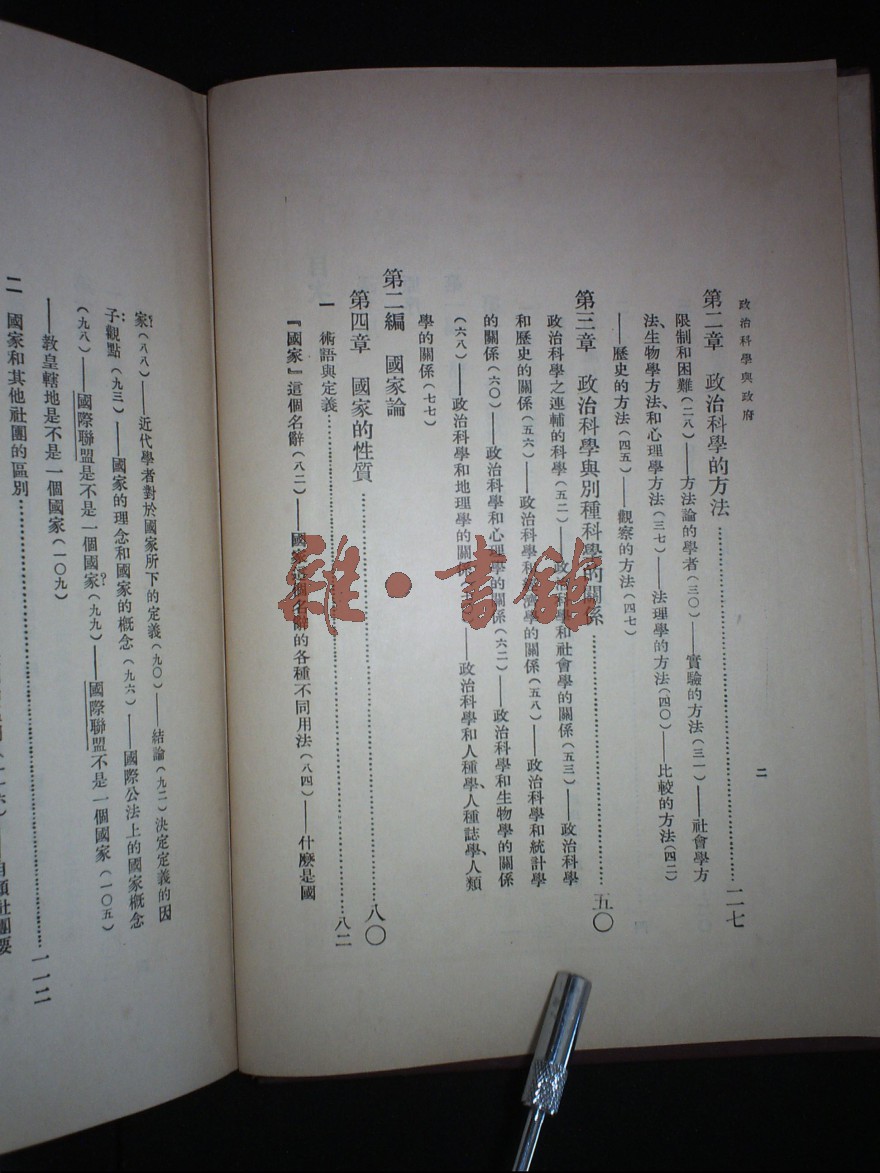 政治科學與政府
二
第二章　政治科學的方法……二七
限制和困難(二八)——方法論的學者(三〇)——實驗的方法(三一)——社會學方
法、生物學方法和心理學方法(三七)——法理學的方法(四〇)——比較的方法(四二)
——歷史的方法(四五)——觀察的方法(四七)
第三章　政治科學與別種科學的關係……五〇
政治科學之連輔的科學(五二)——政治科學和社會學的關係(五三)——政治科學
和歷史的關係(五六)——政治科學和經濟學的關係(五八)——政治科學和統計學
的關係(六〇)——政治科學和心理學的關係(六二)——政治科學和生物學的關係
(六八)——政治科學和地理學的關係——政治科學和人種學、人種誌學、人類
學的關係(七七)
第二編　國家論
第四章　國家的性質……八〇
一　術語與定義……八二
『國家』這個名辭(八二)——國家這個名辭的各種不同用法(八四)——什麼是國
家?(八八)——近代學者對於國家所下的定義(九〇)——結論(九二)決定定義的因
子:觀點(九三)——國家的理念和國家的概念(九六)——國際公法上的國家概念
(九八)——國際聯盟是不是一個國家?(九九)——國際聯盟不是一個國家(一〇五)
——教皇轄地是不是一個國家(一〇九)
二　國家和其他社團的區別……一一二
雜·書館